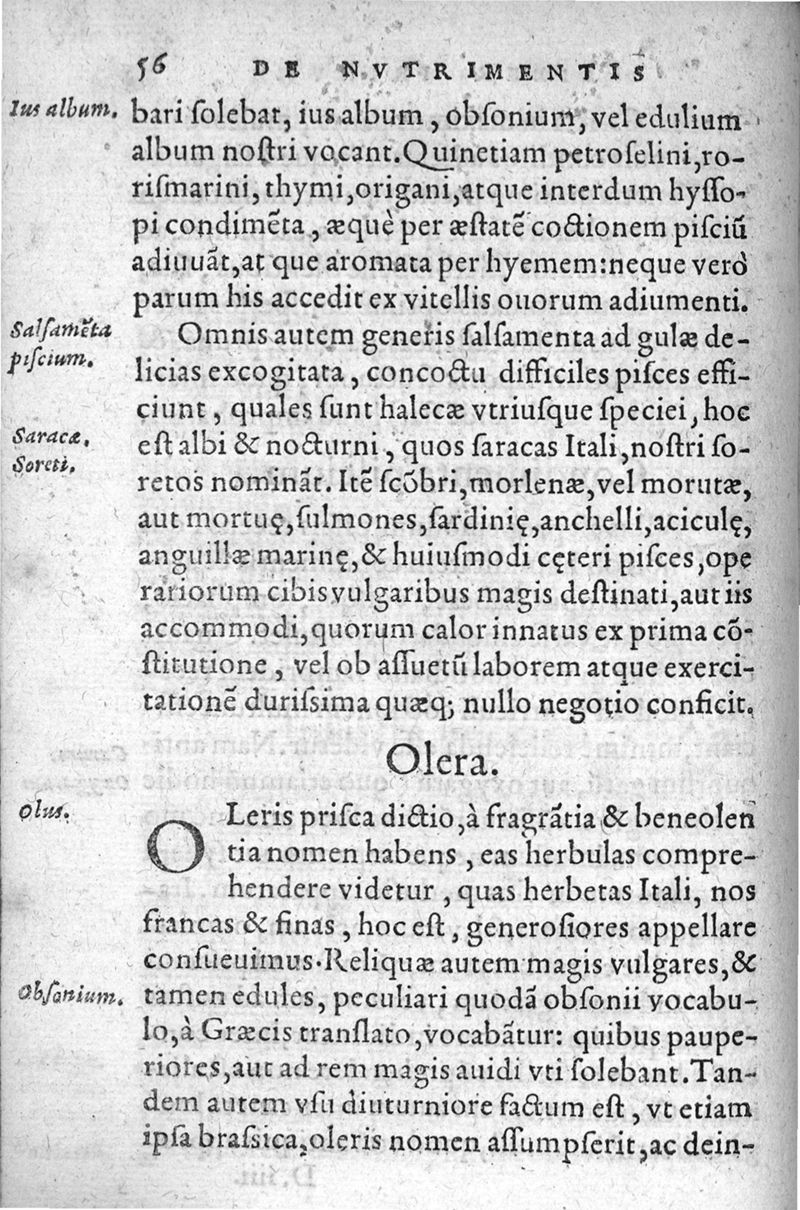 56 DE NVTRIMENTIS
Ius album.
bari ſolebat, ius album, obſonium, vel edulium
album noſtri vocant. Quinetiam petroſelini, ro-
riſmarini, thymi, origani, atque interdum hyſſo-
pi condimẽta, æquè per æſtatẽ coctionem piſciũ
adiuuãt, at que aromata per hyemem: neque verò
parum his accedit ex vitellis ouorum adiumenti.
Salſamẽta
piſcium.
Omnis autem generis ſalſamenta ad gulæ de-
licias excogitata, concoctu difficiles piſces effi-
ciunt, quales ſunt halecæ vtriuſque ſpeciei, hoc
Saracæ.
Soreti.
eſt albi & nocturni, quos ſaracas Itali, noſtri ſo-
retos nominãt. Itẽ ſcõbri, morlenæ, vel morutæ,
aut mortuę, ſulmones, ſardinię, anchelli, aciculę,
anguillæ marinę, & huiuſmodi cęteri piſces, ope
rariorum cibis vulgaribus magis deſtinati, aut iis
accommodi, quorum calor innatus ex prima cõ-
ſtitutione, vel ob aſſuetũ laborem atque exerci-
tationẽ duriſsima quæq; nullo negotio conficit.
Olera.
Olus.
OLeris priſca dictio, à fragrãtia & beneolen
tia nomen habens, eas herbulas compre-
hendere videtur, quas herbetas Itali, nos
francas & finas, hoc eſt, generoſiores appellare
conſueuimus. Reliquæ autem magis vulgares, &
Obſonium.
tamen edules, peculiari quodã obſonii vocabu-
lo, à Græcis tranſlato, vocabãtur: quibus paupe-
riores, aut ad rem magis auidi vti ſolebant. Tan-
dem autem vſu diuturniore factum eſt, vt etiam
ipſa braſsica, oleris nomen aſſumpſerit, ac dein-